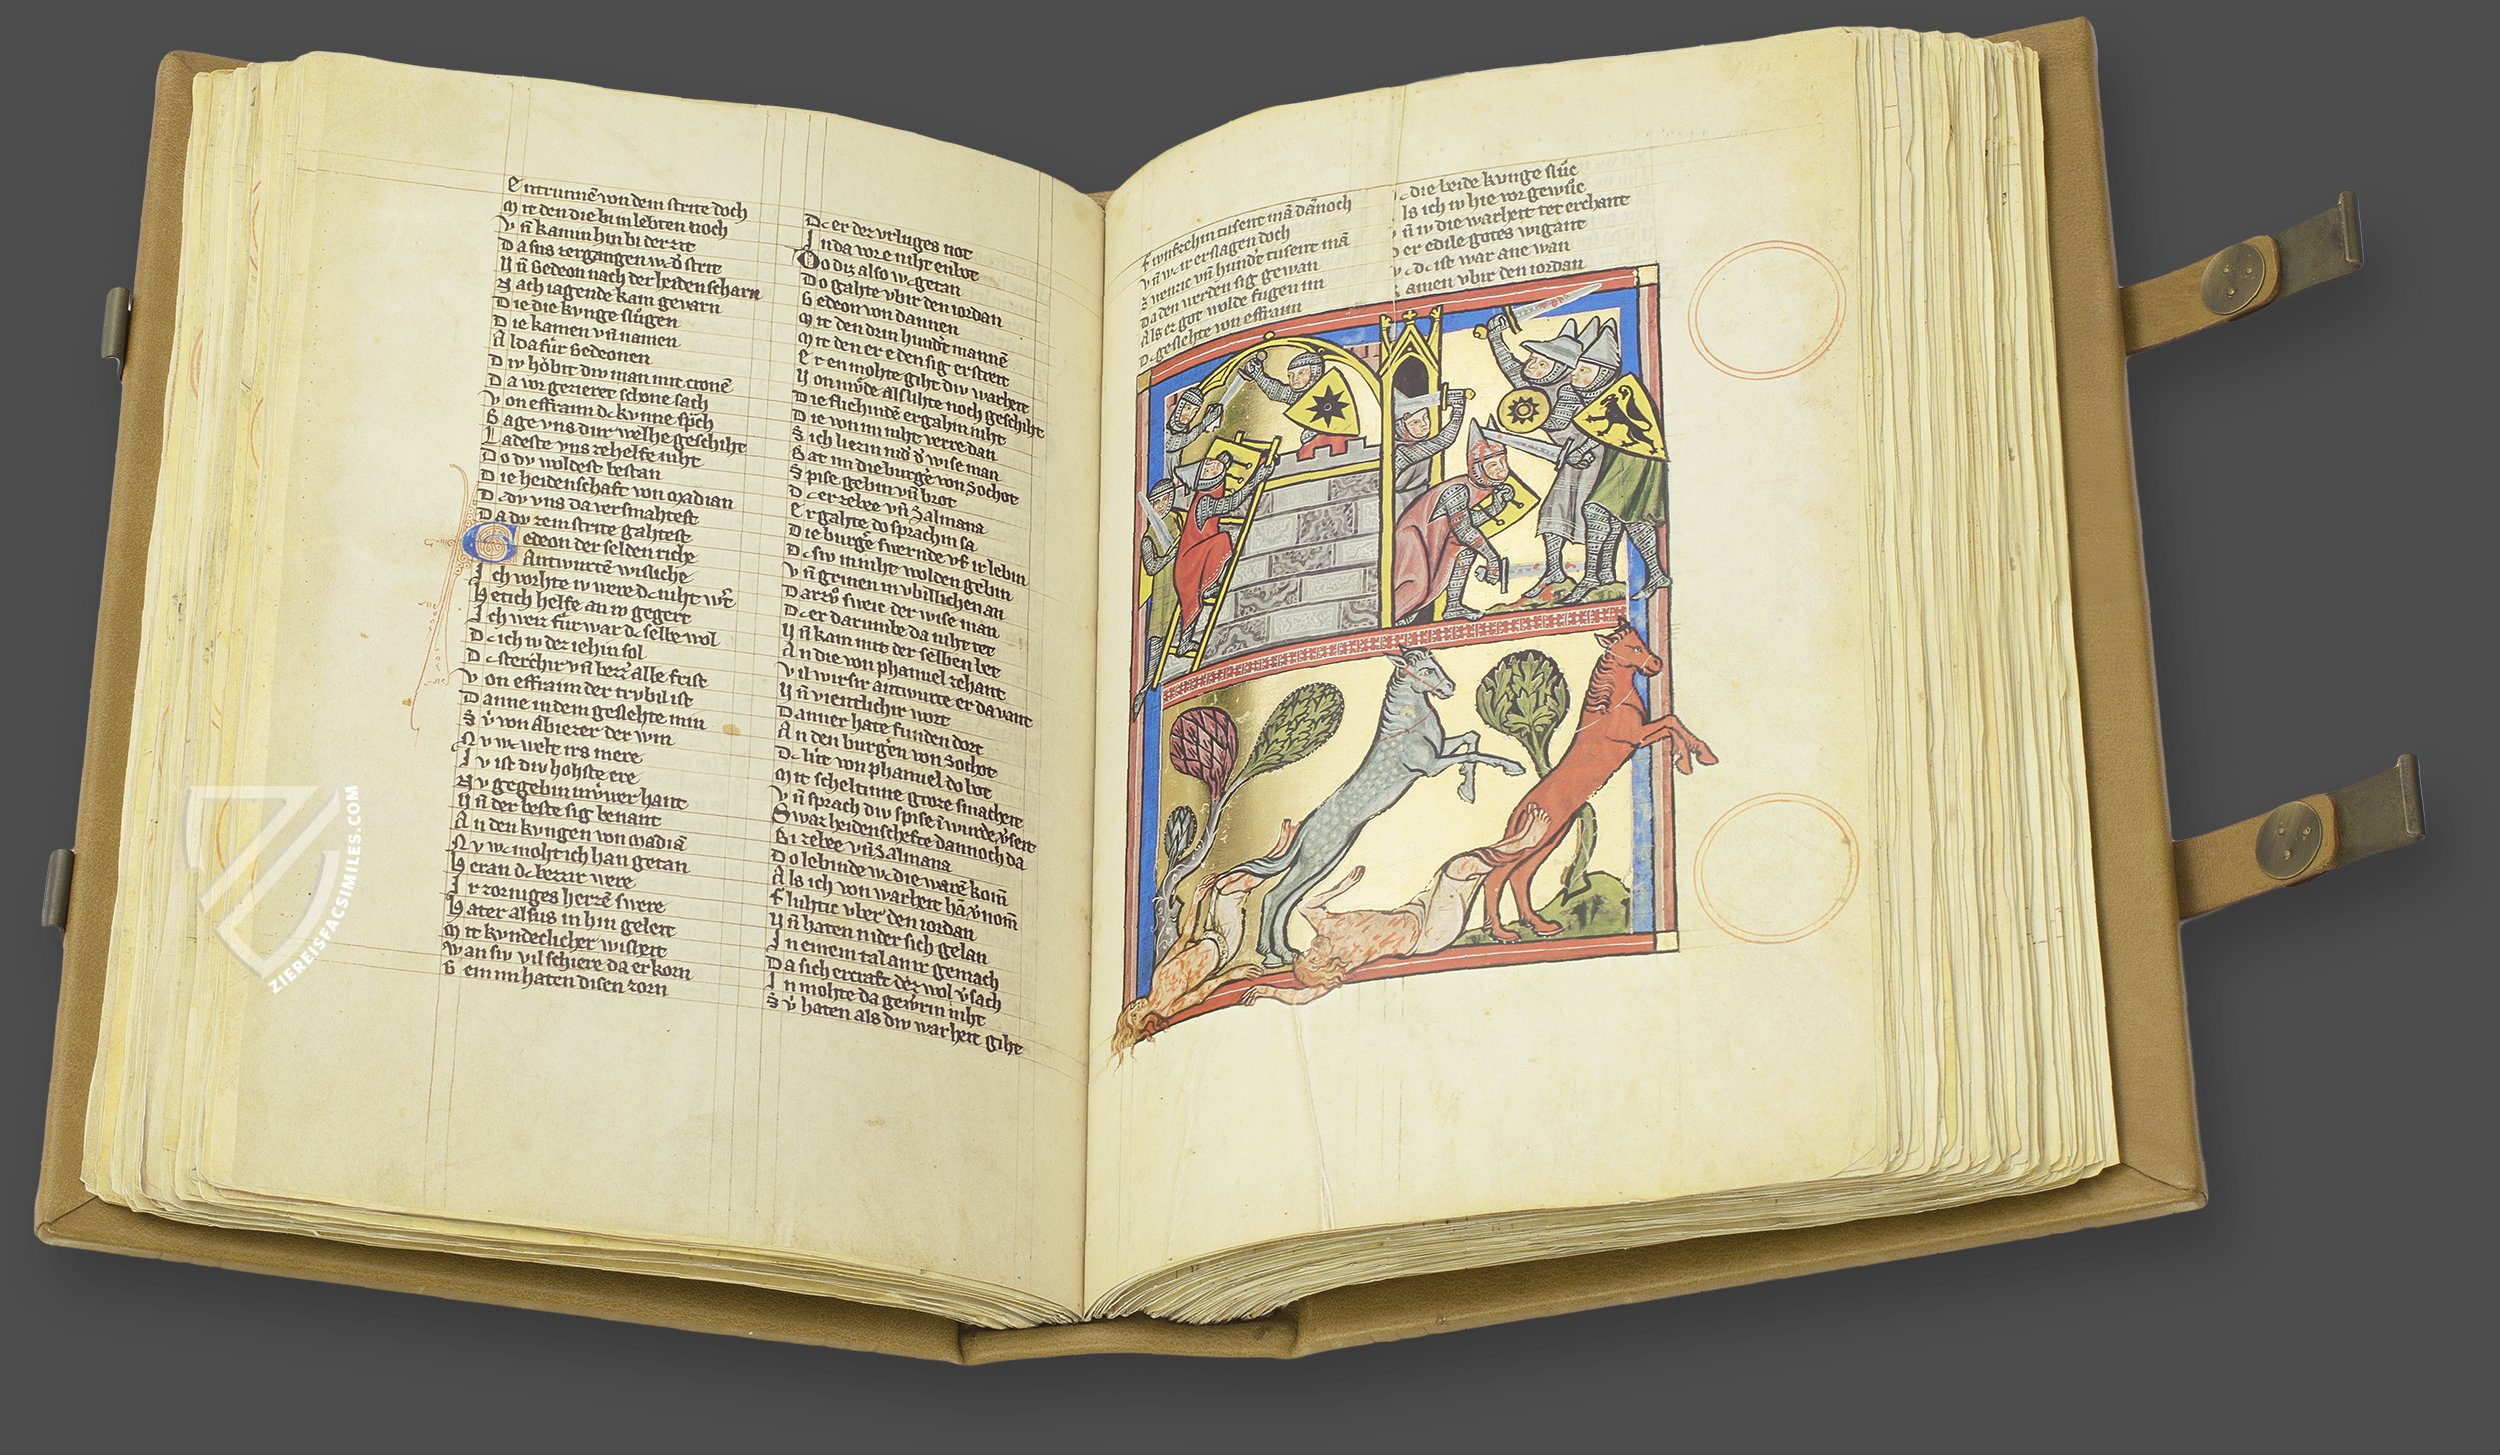 Entrunnē von dem strite doch
Mit den die bi im lebten noch
Vn̄ kamin hin bi der zit
Da sus zergangen wc d̓ strit
Un̄ Gedeon nach der heiden scharn
Nach iagende kam gevarn
Die die kvnge slůgen
Die kamen vn̄ namen
Alda für Gedeonen
Div hŏbit div man mit cronē
Da vor gezieret schone sach
Von effraim dc kvnne spͣch
Sage vns dur welhe geschiht
Ladeste vns zehelfe niht
Do dv woldest bestan
Die heidenschaft von Madian
Dc dv vns da versmahtest
Da dv zem strite gahtest
Gedeon der selden riche
Antwurtē wisliche
Ich vorhte iv were dc niht w̓t
Het ich helfe an iv gegert
Ich weiz für war dc selbe wol
Dc ich iv der iehin sol
Dc sterchir vn̄ bezz̓ alle frist
Von effraim der trvbil ist
Danne in dem geslehte min
Sv̓ von Abiezer der win
Nv wc welt irs mere
Iv ist div hohste ere
Nv gegebin
Un̄ der beste sig benant
An den kvngen von Madiā
Nv wc moht ich han getan
Heran dc bezzir were
Ir zorniges herzē swere
Hater alsus in hin geleit
Mit kvndeclicher wisheit
Wan siv vil schiere da er korn
Gein im haten disen zorn
Dc er dez vrluges not
In da vor e niht enbot
Do diz also wc getan
Do gahte vbir den iordan
Gedeon von dannen
Mit den drin hundt̓ mannē
Mit den er e den sig erstreit
Er en mohte giht div warheit
Von mv̊de als uhte noch geschiht
Die flichindē ergahin niht
Die von im niht verre dan
Sich liezin nid̓ d̓ wise man
Bat im die burgˀe von Sochot
Spise gebin vn̄ brot
Dc er zebee vn̄ Salmana
Ergahte do sprachin sa
Die burgˀe swernde vf ir lebin
Dc siv in niht wolden gebin
Vn̄ grinen in vbillichen an
Darzv̊ sweic der wise man
Dc er darumbe da niht tet
Un̄ kam mit der selben bet
An die von phanuel zehant
Vil wirsir antwurte er da vant
Un̄ vientlichir wort
Danner hate funden dort
An den burgˀen von Sochot
Dc lůt von phanuel do bot
Mit scheltinne groze smachere
Vn̄ sprach div spise ī wurde v̓seit
Swaz heidenschefte dannoch da
Bi zebee vn̄ Salmana
Do lebinde wc die warē kom̄
Als ich von warheit hā v̓nom̄
Fluhtic vber den iordan
Un̄ haten nider sich gelan
In einem tal an ir gemach
Da sich ercraft dez wol v̓sach
In mohte da gew̓rin niht
Sv̓ haten als div warheit giht
Fivnfzehin tusent mā dānoch
Vn̄ wc ir erslagen doch
Zwenzic vn̄ hundˀt tusent mā
Da den werden sig gewan
Als ez got wolde fugen im
Dc geslehte von effraim
Dc die beide kvnge slůc
Als ich iv hie vor gewůc
Vn̄ iv die warheit tet erchant
Der edile gotes wigant
Wc dc ist war ane wan
Kamen vbir den iordan
ZIEREISFACSIMILES.COM